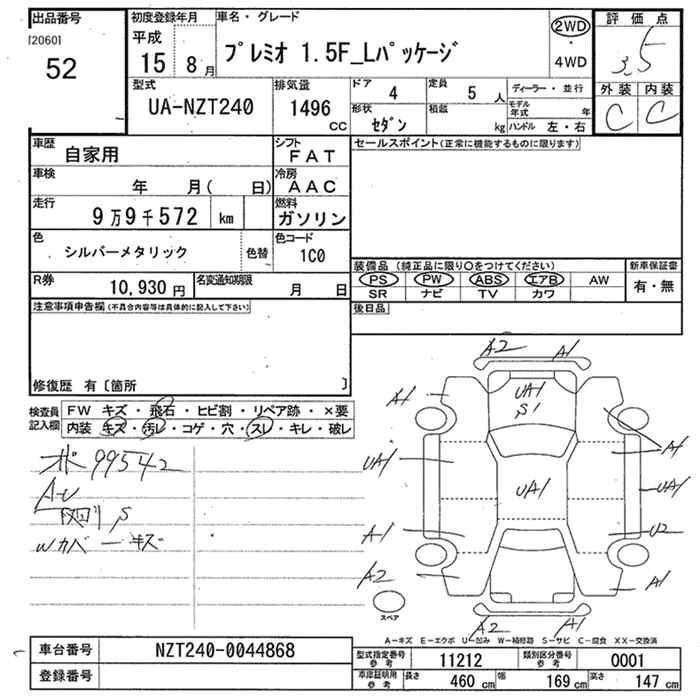 出品番号
[2060]
52
初度登録年月
平成
15 8月
車名・グレード
プレミオ 1.5F_Lパッケージ
2WD
・
4WD
評価点
3.5
外装 内装
C C
型式
UA-NZT240
排気量
1496
CC
ドア 4
形状 セダン
定員 5 人
積載 kg
ディーラー・並行
モデル年式 年
ハンドル 左・右
車歴
自家用
シフト
FAT
車検
年 月( 日)
冷房
AAC
走行
9万9千572 km
燃料
ガソリン
色
シルバーメタリック
色替
色コード
1C0
R券
10,930 円
名変通知期限
月 日
セールスポイント(正常に機能するものに限ります)
装備品 (純正品に限り○をつけてください)
PS PW ABS エアB AW
SR ナビ TV カワ
新車保証書
有・無
後日品
注意事項申告欄(不具合内容等は具体的に記入して下さい)
修復歴 有〔箇所 〕
検査員記入欄
FW キズ・飛石・ヒビ割・リペア跡・×要
内装 キズ・汚レ・コゲ・穴・スレ・キレ・破レ
ポ 99542
A-U
凹 S
Wカバーキズ
A2 A1
A1 UA1 S1
A1
UA1 UA1 UA1
A1 U2
A2 A1
スペア
A2 A1
A-キズ E-エクボ U-凹み W-補修跡 S-サビ C-腐食 XX-交換済
車台番号 NZT240-0044868
登録番号
型式指定番号 参考 11212
類別区分番号 参考 0001
車庫証明用 参考 長さ 460 cm 幅 169 cm 高さ 147 cm